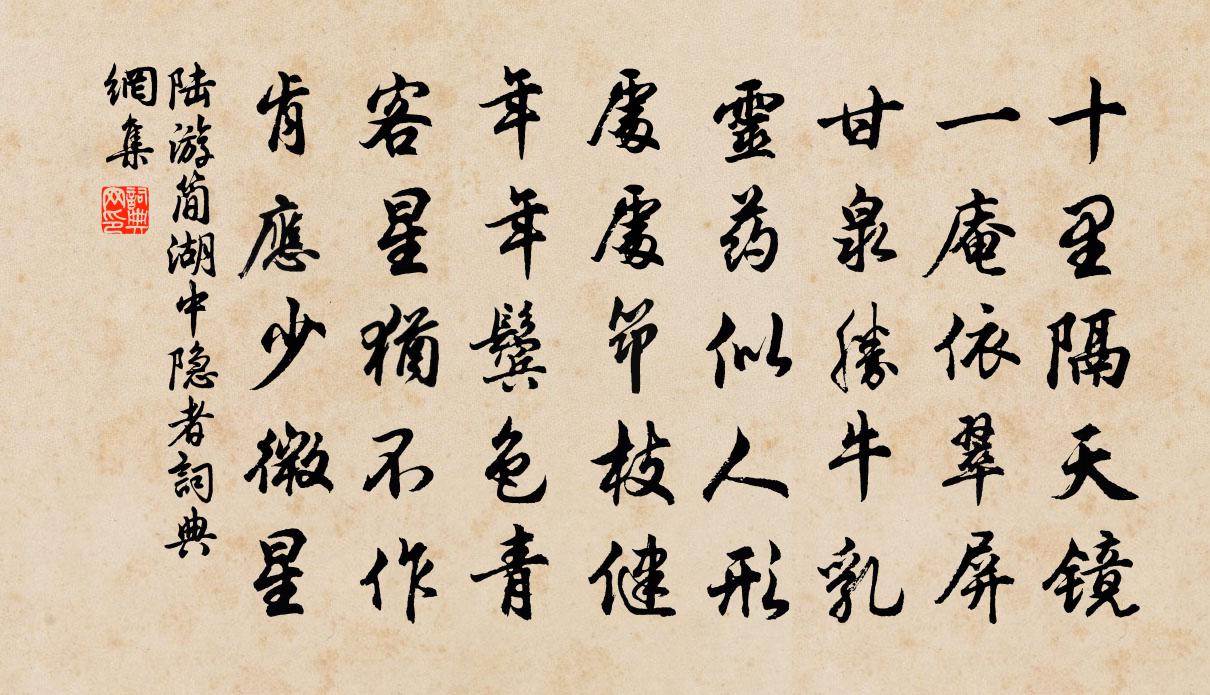 十里隔天镜
一庵依翠屏
甘泉勝牛乳
靈药似人形
處處筇枝健
年年鬢色青
客星猶不作
肯應少微星
陆游简湖中隐者詞典
網集
詞典
网印